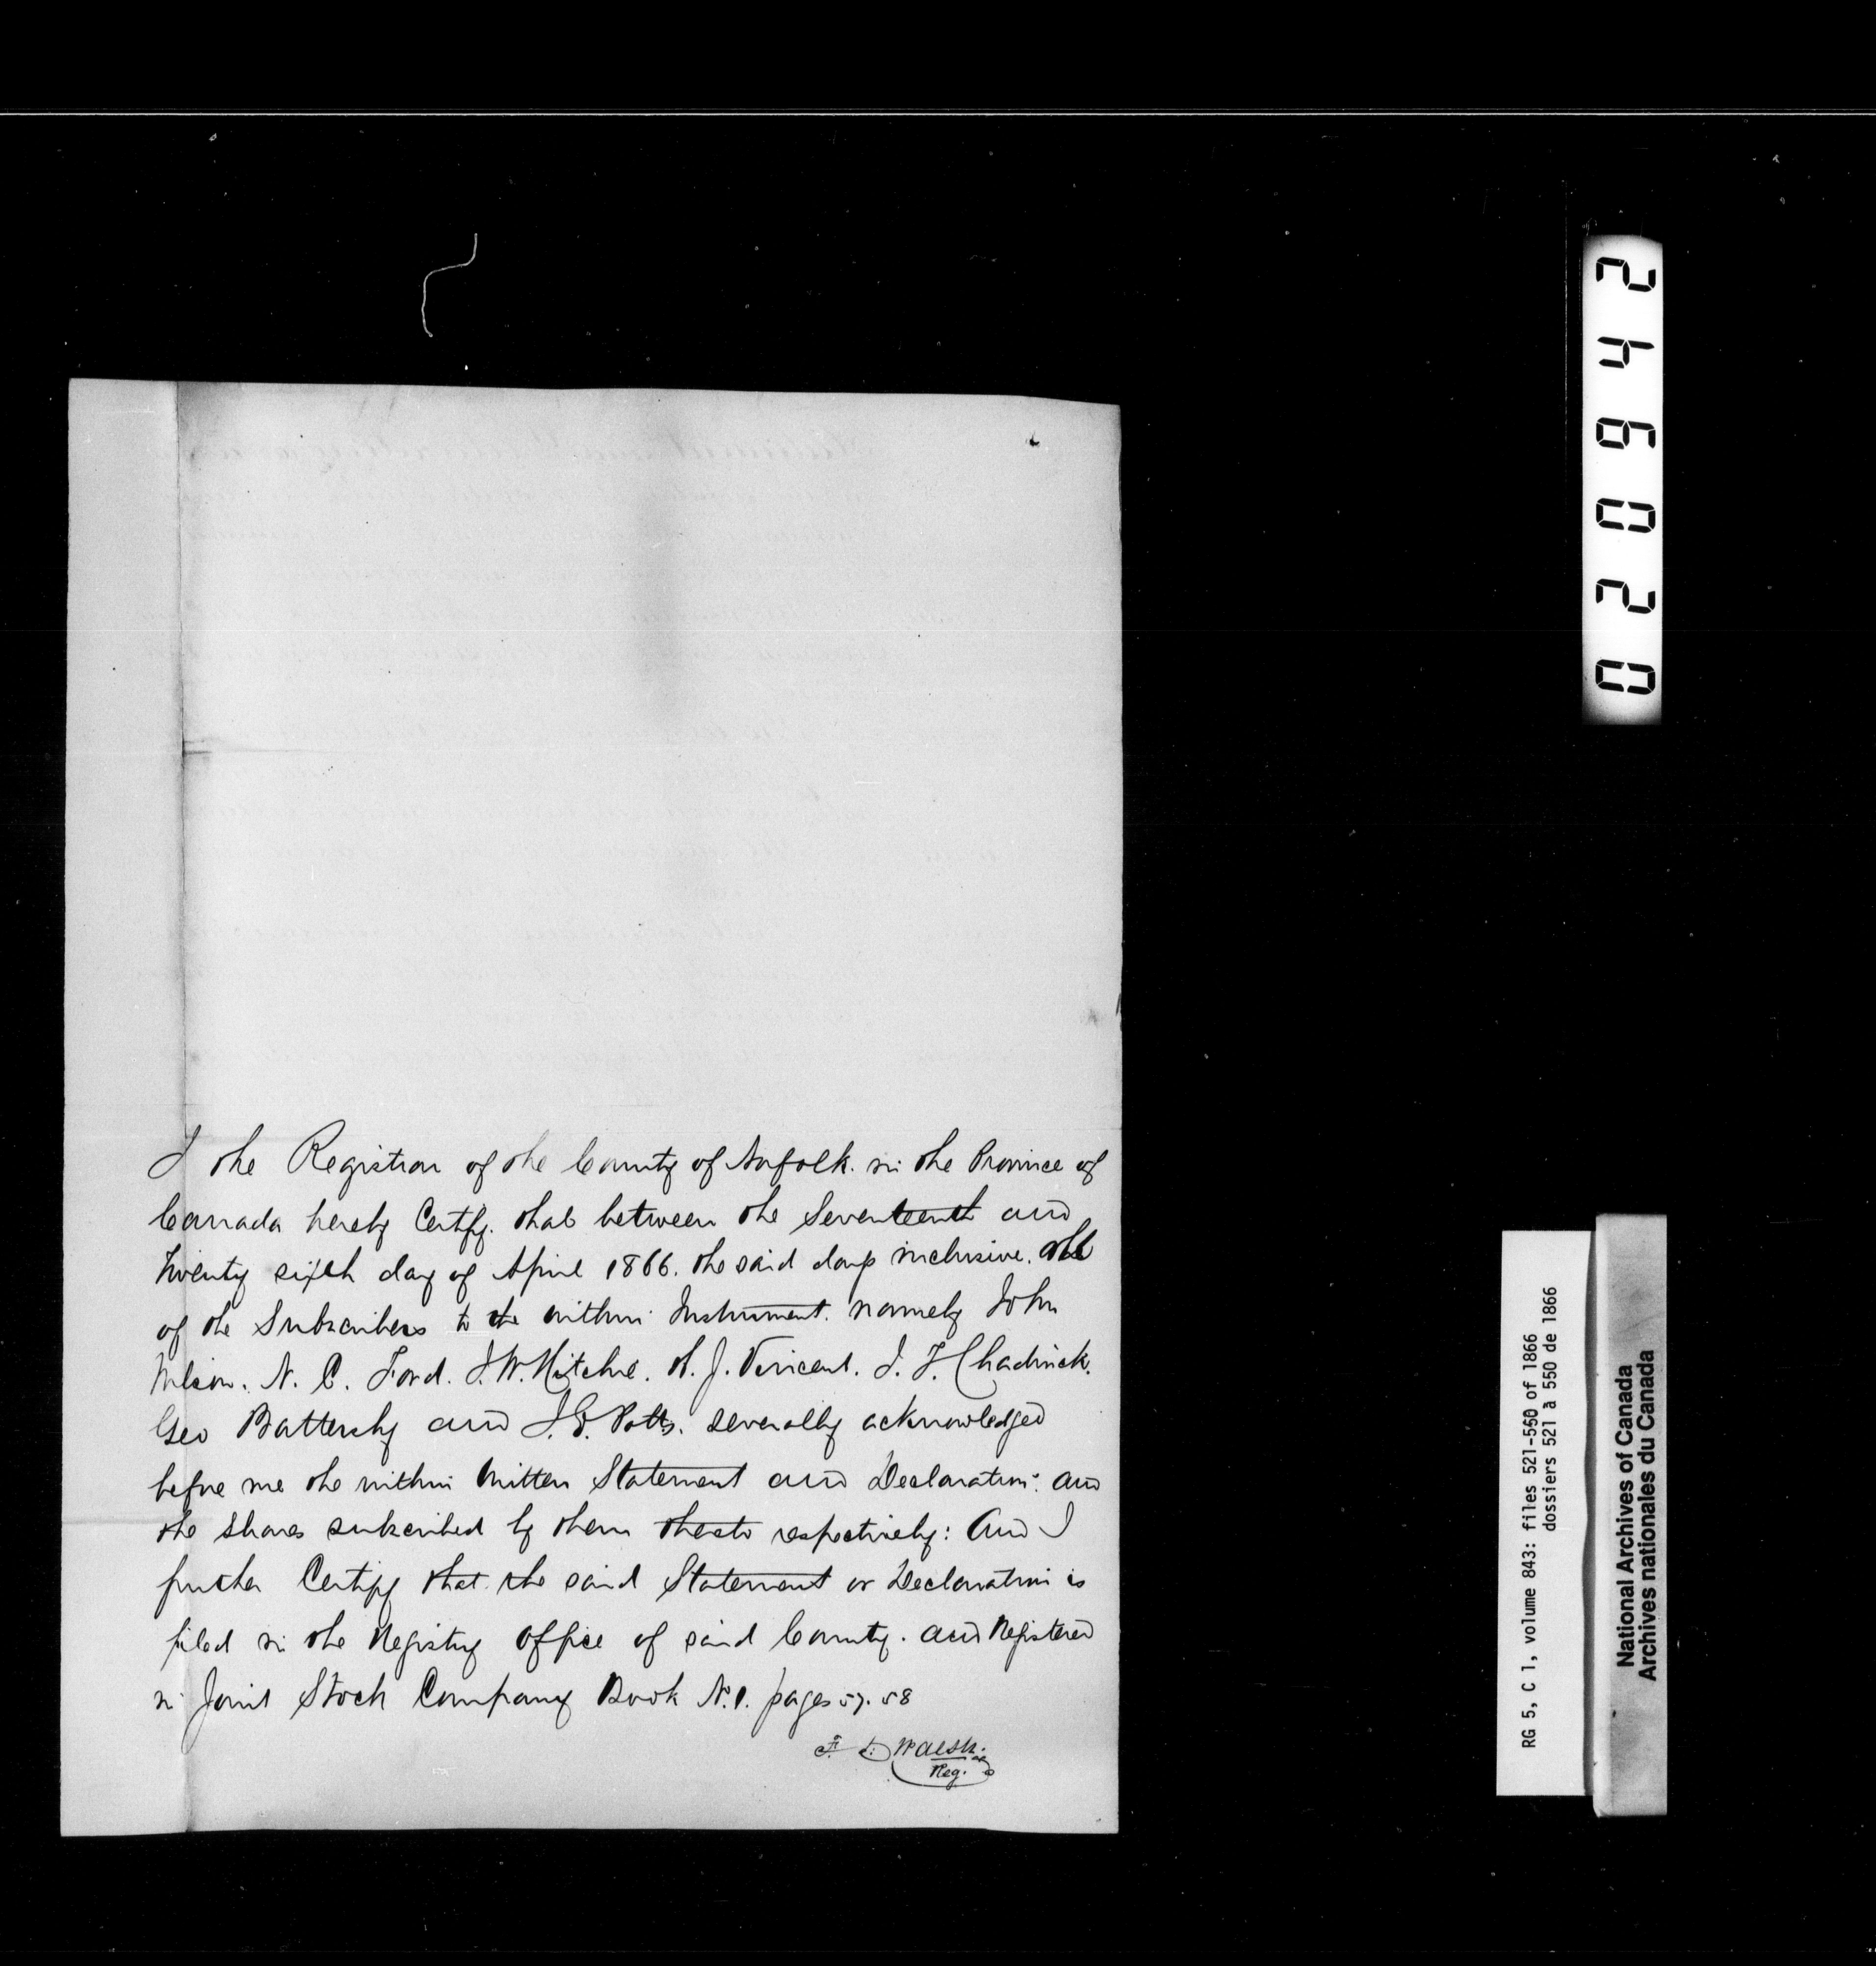 I the Registrar of the County of Norfolk. in the Province of
Canada hereby Certify. that between the Seventeenth and
Twenty sixth day of April 1866. the said days inclusive. all
of the Subscribers to the within Instrument. namely John
Wilson. N. C. Ford. J. W. H. J. Vincent. J. F. Chadwick.
Geo Battersby and J. G. Potts. severally acknowledged
before me the within Written Statement and Declaration: and
the shares subscribed by them thereto respectively: And I
further Certify that the said Statement or Declaration is
filed in the Registry Office of said County. and Registered
in Joint Stock Company Book No. 1. pages 57. 58
Walsh.
Reg.
024602
RG 5, C 1, volume 843: files 521-550 of 1866
dossiers 521 à 550 de 1866
National Archives of Canada
Archives nationales du Canada